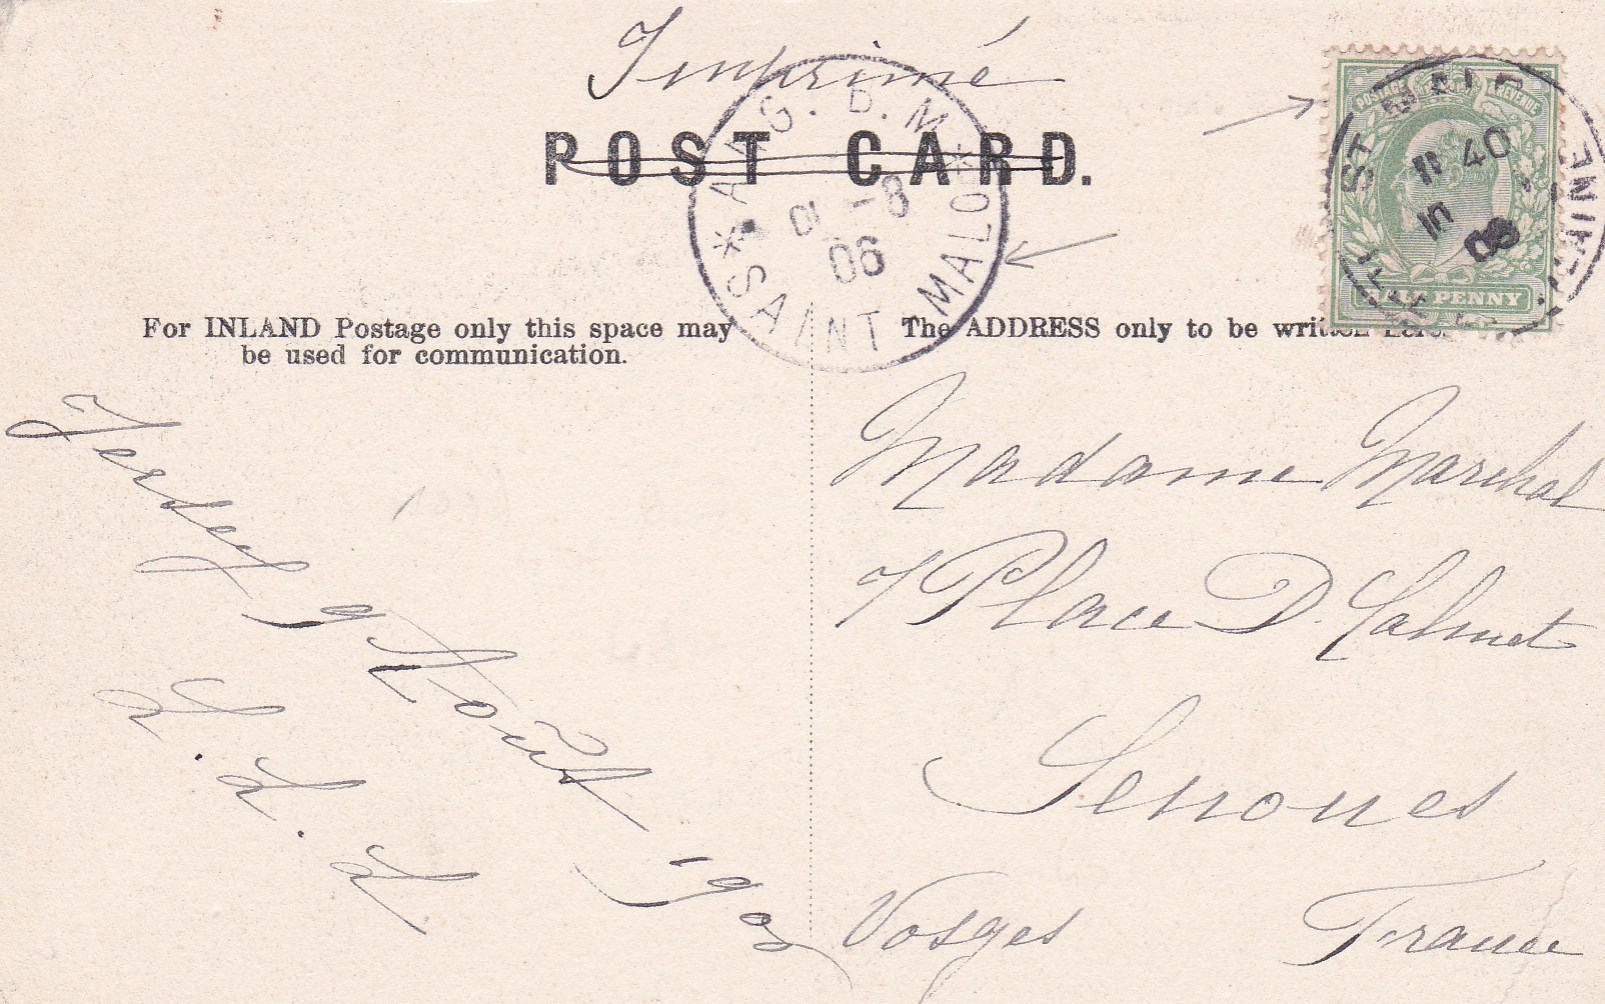 Imprimé
POST CARD.
* ANG. B. M *
-8
06
SAINT-MALO
POSTAGE & REVENUE
HALF PENNY
ST MALO
11 40
06
For INLAND Postage only this space may
be used for communication.
The ADDRESS only to be written here.
Jersey 9 Août 190
Madame Marchal
7 Place D. Calmet
Senones
Vosges France